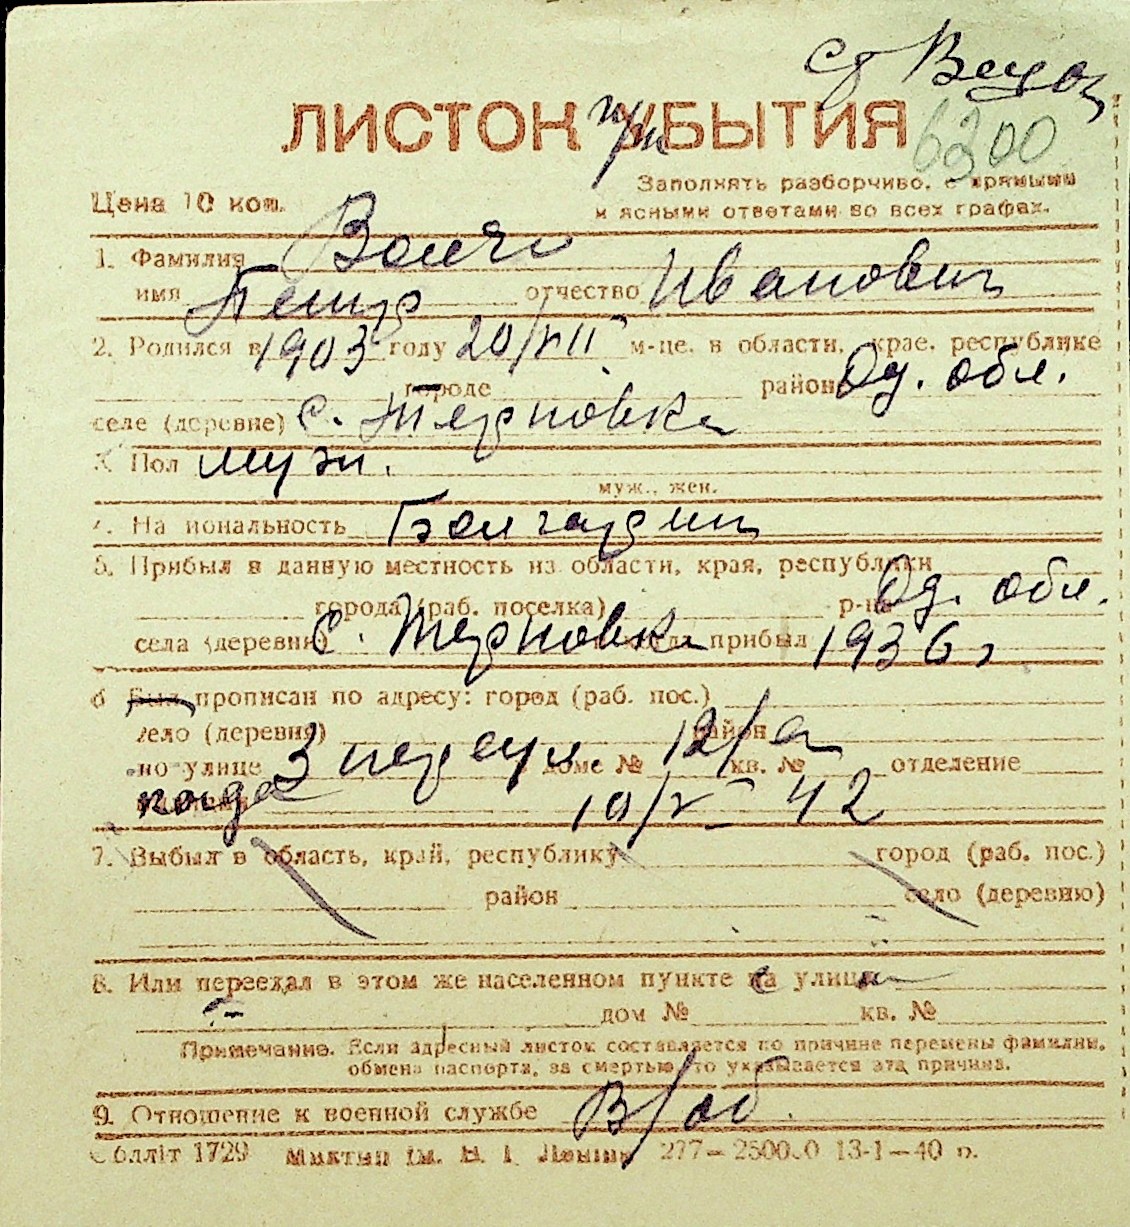 6200
ЛИСТОК УБЫТИЯ
Цена 10 коп.
Заполнять разборчиво, с прямыми
и ясными ответами во всех графах.
1. Фамилия Волчо
имя Петр отчество Иванович
2. Родился в 1903 году 20/VII м-це, в области, крае, республике
городе район Од. обл.
селе (деревне) с. Терновка
3. Пол муж.
муж., жен.
4. Национальность Болгарин
5. Прибыл в данную местность из области, края, республики
города (раб. поселка) р-на Од. обл.
села (деревни) с. Терновка когда прибыл 1936 г
6 Был прописан по адресу: город (раб. пос.)
село (деревня) район
по улице 3 пер ул. доме № 12/а кв. № отделение
когда 10/V 42
7. Выбыл в область, край, республику город (раб. пос.)
район село (деревню)
8. Или переехал в этом же населенном пункте на улицу
дом № кв. №
Примечание. Если адресный листок составляется по причине перемены фамилии,
обмена паспорта, за смертью, то указывается эта причина.
9. Отношение к военной службе В/об.
Облліт 1729 ім. 13-1—40 р.